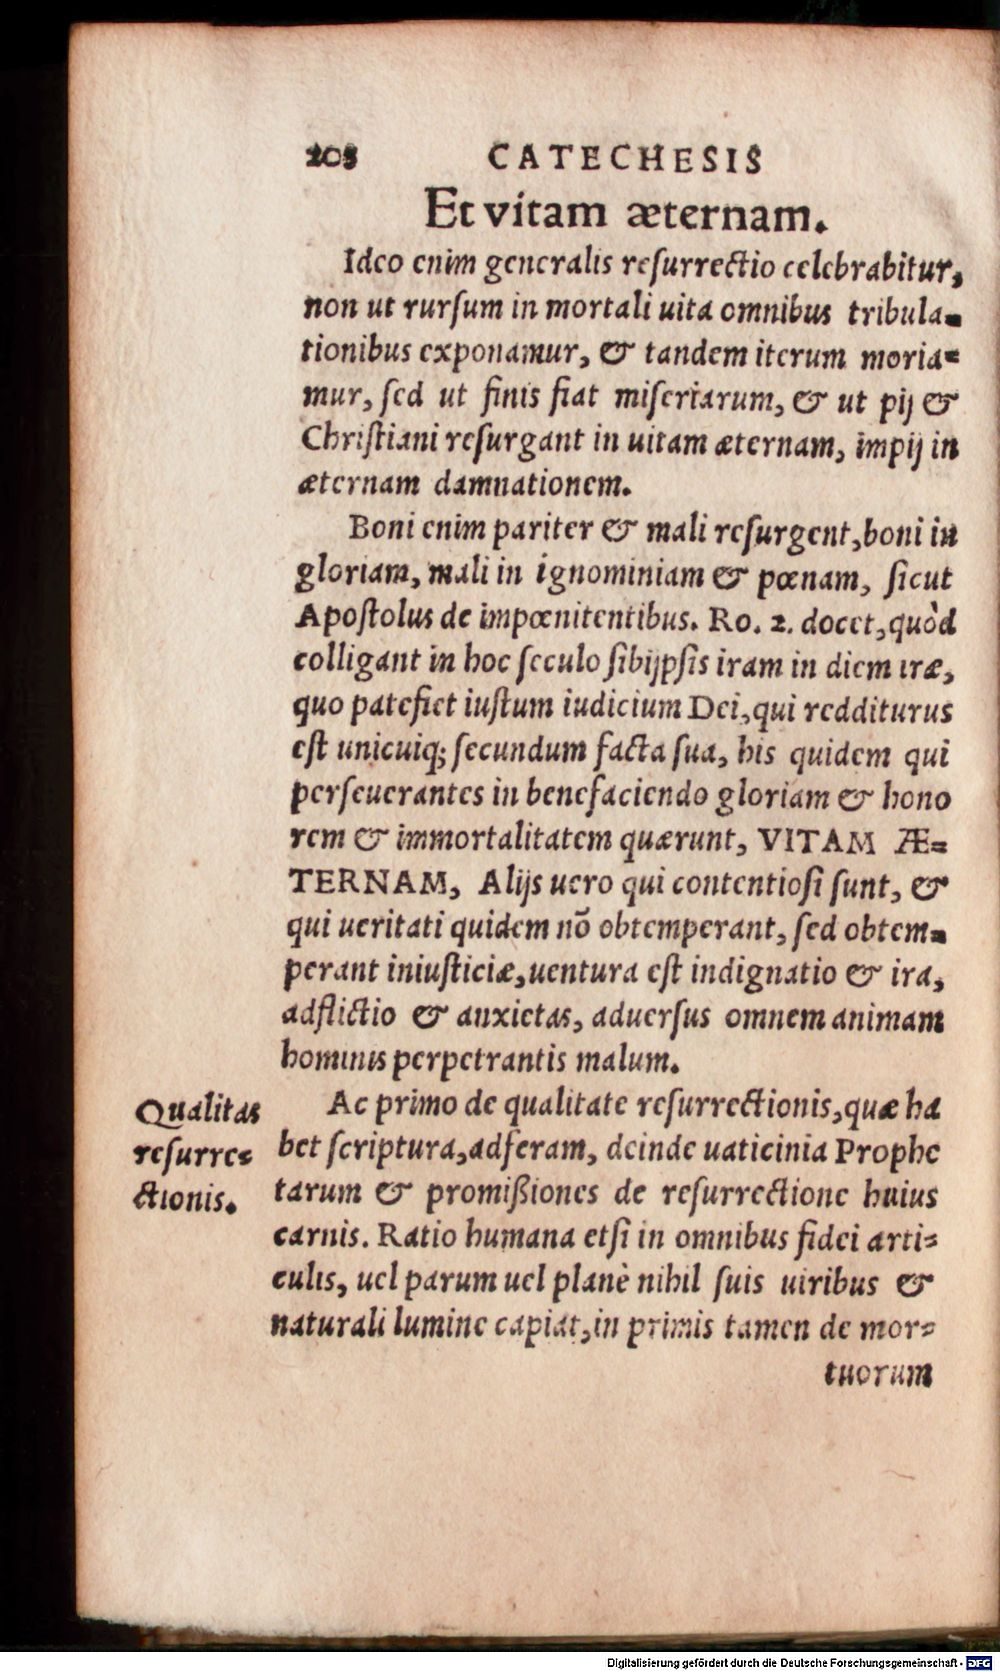 208 CATECHESIS
Et vitam æternam.
Ideo enim generalis reſurrectio celebrabitur,
non ut rurſum in mortali uita omnibus tribula-
tionibus exponamur, & tandem iterum moria-
mur, ſed ut finis fiat miſeriarum, & ut pij &
Chriſtiani reſurgant in uitam æternam, impij in
æternam damnationem.
Boni enim pariter & mali reſurgent, boni in
gloriam, mali in ignominiam & pœnam, ſicut
Apoſtolus de impœnitentibus. Ro. 2. docet, quòd
colligant in hoc ſeculo ſibijpſis iram in diem iræ,
quo patefiet iuſtum iudicium Dei, qui redditurus
eſt unicuiq; ſecundum facta ſua, his quidem qui
perſeuerantes in benefaciendo gloriam & hono
rem & immortalitatem quærunt, VITAM Æ=
TERNAM, Alijs uero qui contentioſi ſunt, &
qui ueritati quidem nõ obtemperant, ſed obtem-
perant iniuſticiæ, uentura eſt indignatio & ira,
adflictio & anxietas, aduerſus omnem animam
hominis perpetrantis malum.
Qualitas
reſurre=
ctionis.
Ac primo de qualitate reſurrectionis, quæ ha
bet ſcriptura, adferam, deinde uaticinia Prophe
tarum & promiſsiones de reſurrectione huius
carnis. Ratio humana etſi in omnibus fidei arti=
culis, uel parum uel planè nihil ſuis uiribus &
naturali lumine capiat, in primis tamen de mor=
tuorum
Digitalisierung gefördert durch die Deutsche Forschungsgemeinschaft - DFG